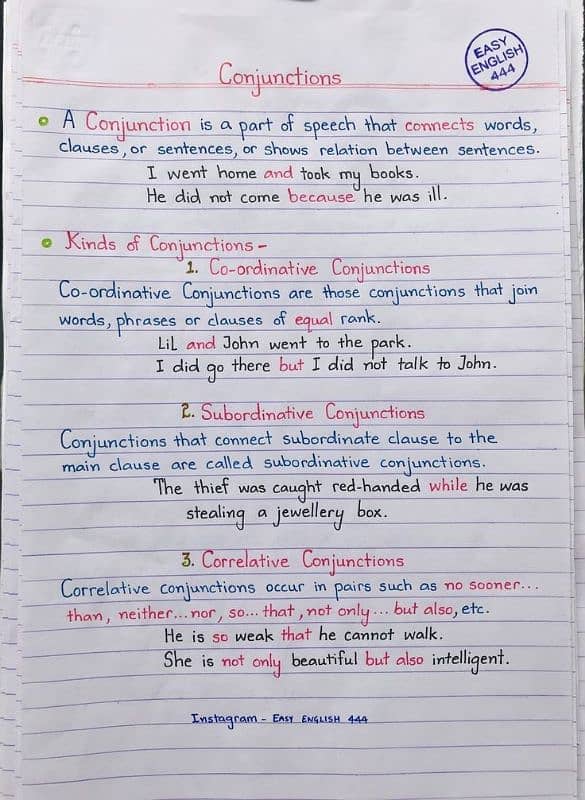 EASY
ENGLISH
444
Conjunctions
A Conjunction is a part of speech that connects words,
clauses, or sentences, or shows relation between sentences.
I went home and took my books.
He did not come because he was ill.
Kinds of Conjunctions -
1. Co-ordinative Conjunctions
Co-ordinative Conjunctions are those conjunctions that join
words, phrases or clauses of equal rank.
LiL and John went to the park.
I did go there but I did not talk to John.
2. Subordinative Conjunctions
Conjunctions that connect subordinate clause to the
main clause are called subordinative conjunctions.
The thief was caught red-handed while he was
stealing a jewellery box.
3. Correlative Conjunctions
Correlative conjunctions occur in pairs such as no sooner...
than, neither...nor, so... that, not only... but also, etc.
He is so weak that he cannot walk.
She is not only beautiful but also intelligent.
Instagram - EASY ENGLISH 444